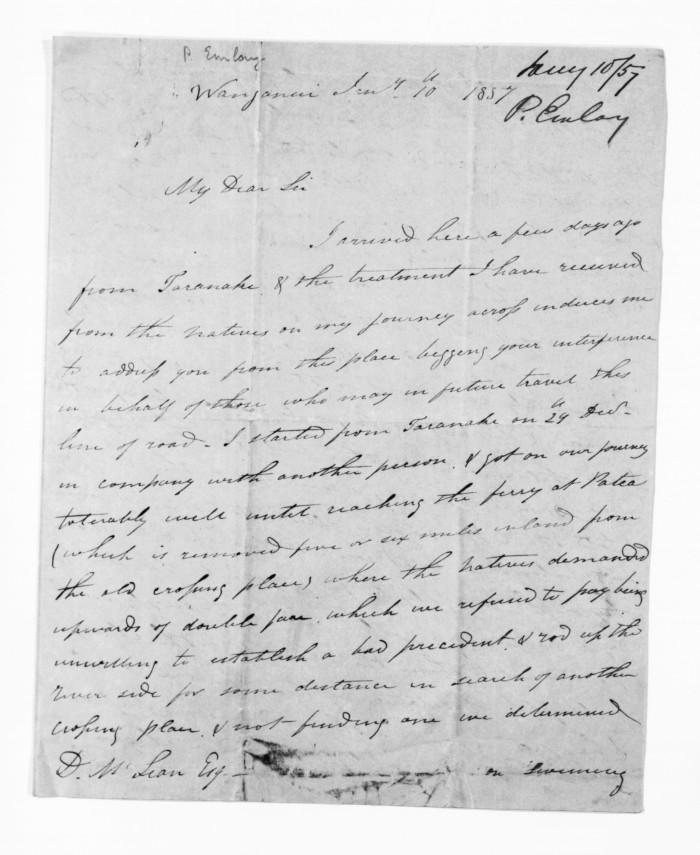 P. Emlay.
Jany 10/57
P. Emlay
Wanganui Jany. 10th 1857
My Dear Sir
I arrived here a few days ago
from Taranake & the treatment I have received
from the natives on my journey across induces me
to address you from this place begging your interference
in behalf of those who may in future travel this
line of road - I started from Taranake on 29th Decr.
in company with another person, & got on our journey
tolerably well until reaching the ferry at Patea
(which is removed five or six miles inland from
the old crossing place) where the natives demanded
upwards of double fare, which we refused to pay being
unwilling to establish a bad precedent, & rod up the
river side for some distance in search of another
crossing place, & not finding one we determined
D. McLean Esq - on swimming